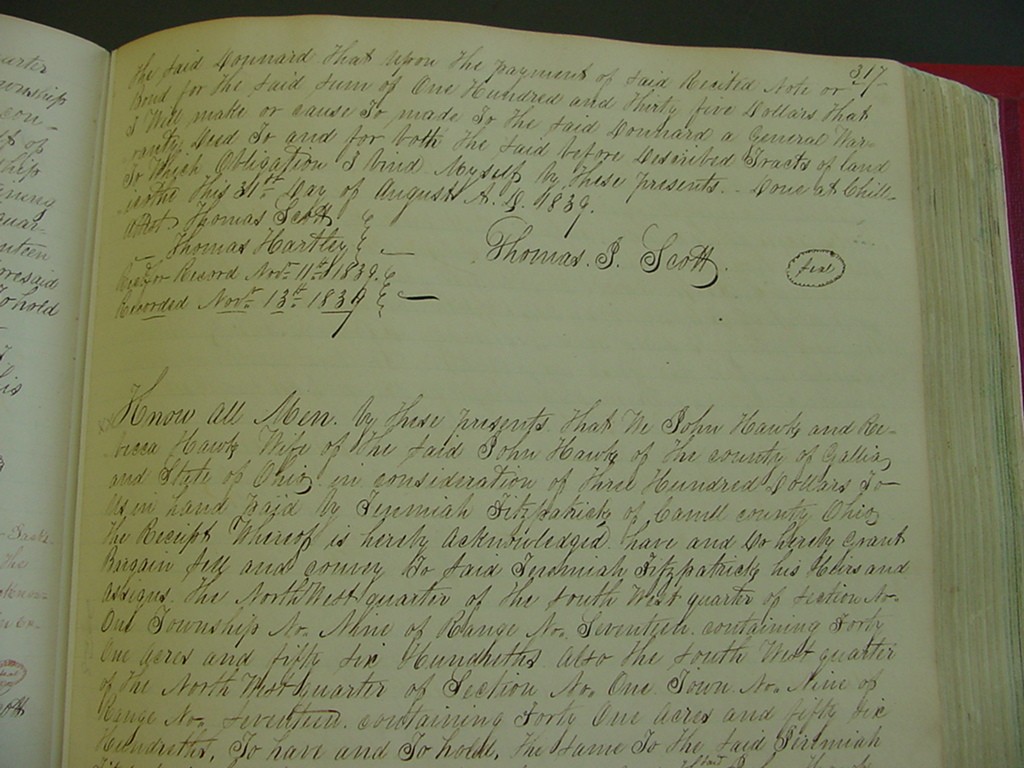 317
the said Donnard that upon the payment of said Recited Note or
Bond for the said sum of One Hundred and thirty five Dollars that
I Will make or cause to made to the said Donnard a General War-
ranty Deed to and for both the said before Described Tracts of land
to Which Obligation I bind Myself by these presents. Done at Chill-
icothe this 31st Day of August A. D. 1839.
Attest Thomas Scott
Thomas Hartley
Thomas. J. Scott.
Seal
Rec for Record Novr 11th 1839.
Recorded Novr 13th 1839
Know All Men by these presents that We John Hawk and Re-
becca Hawk Wife of the said John Hawk of the county of Gallia
and State of Ohio in consideration of three Hundred Dollars to
us in hand paid by Jeremiah Fitzpatrick of county Ohio
the Receipt Whereof is hereby acknowledged have and Do hereby Grant
Bargain Sell and convey to said Jeremiah Fitzpatrick his Heirs and
assigns the North West quarter of the South West quarter of section No.
One Township No. Nine of Range No. Seventeen containing Forty
One acres and fifty six Hundreths Also the South West quarter
of the North West quarter of Section No. One Town No. Nine of
Range No. Seventeen containing Forty One acres and fifty six
Hundreths, To have and To hold, the same To the said Jeremiah
uarter
ownship
con-
of
ship
aining
quar-
enteen
oresaid
onold
his
the
Seal
ott